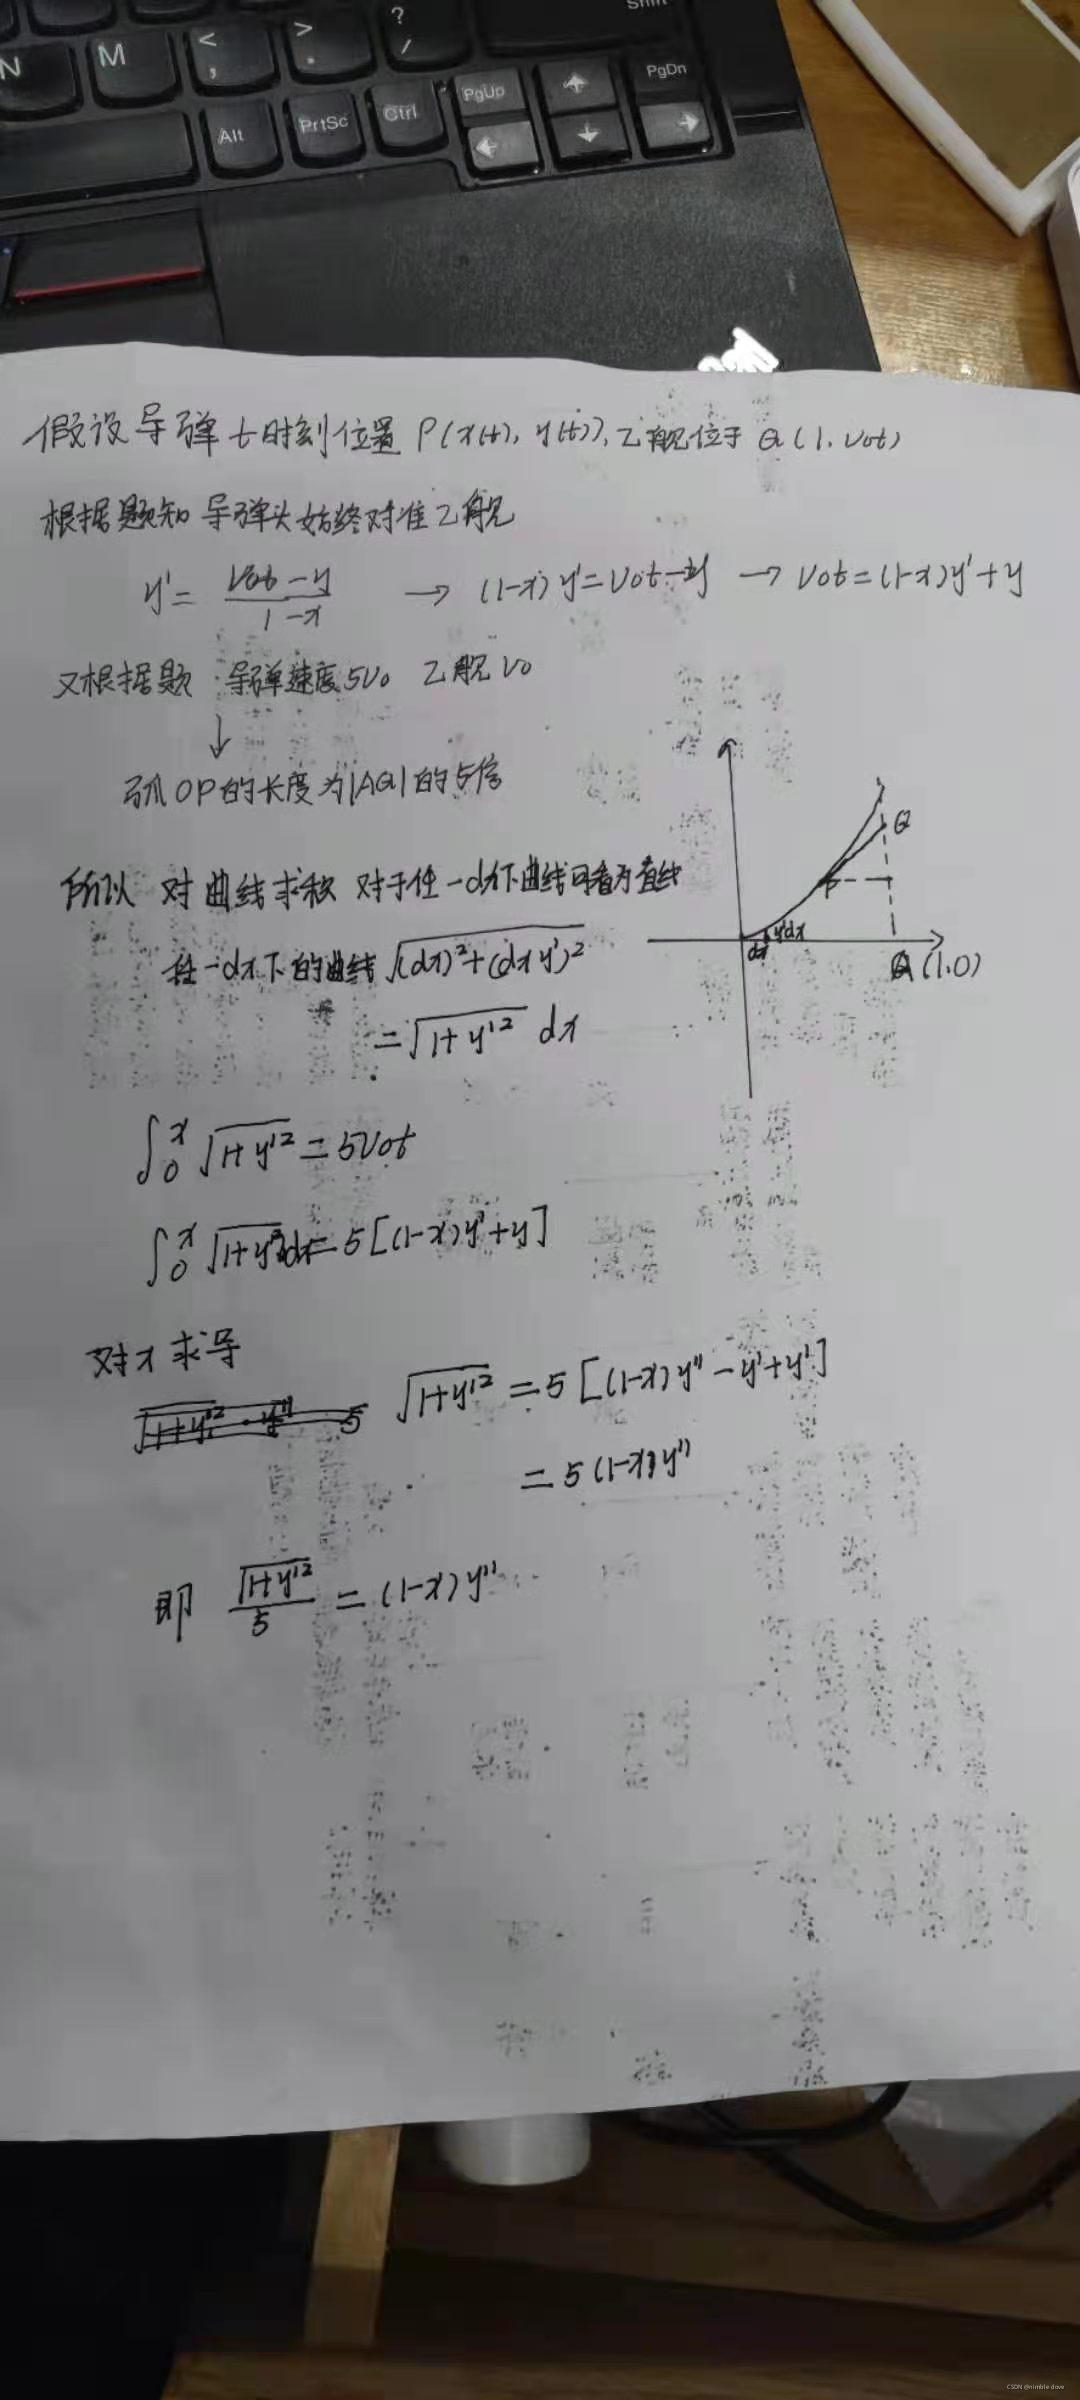 N M < , > . ? / Shift
Alt PrtSc Ctrl PgUp PgDn
假设导弹t时刻位置 P(x(t), y(t)), 乙舰位于 Q(1, V0t)
根据题知 导弹头始终对准乙舰
y' = (V0t - y)/(1 - x) → (1-x)y' = V0t - y → V0t = (1-x)y' + y
又根据题 导弹速度5V0 乙舰V0
↓
弧OP的长度为|AQ|的5倍
所以 对曲线求积 对于任一dx下曲线可看为直线
任一dx下的曲线 √((dx)²+(dx y')²)
= √(1+y'²) dx
Q
P
dx y'dx
(1,0)
∫₀ˣ √(1+y'²) = 5V0t
∫₀ˣ √(1+y'²) dx = 5[(1-x)y'+y]
对x求导
√(1+y'²) = 5[(1-x)y''-y'+y']
= 5(1-x)y''
即 √(1+y'²)/5 = (1-x)y''
CSDN @nimble dove